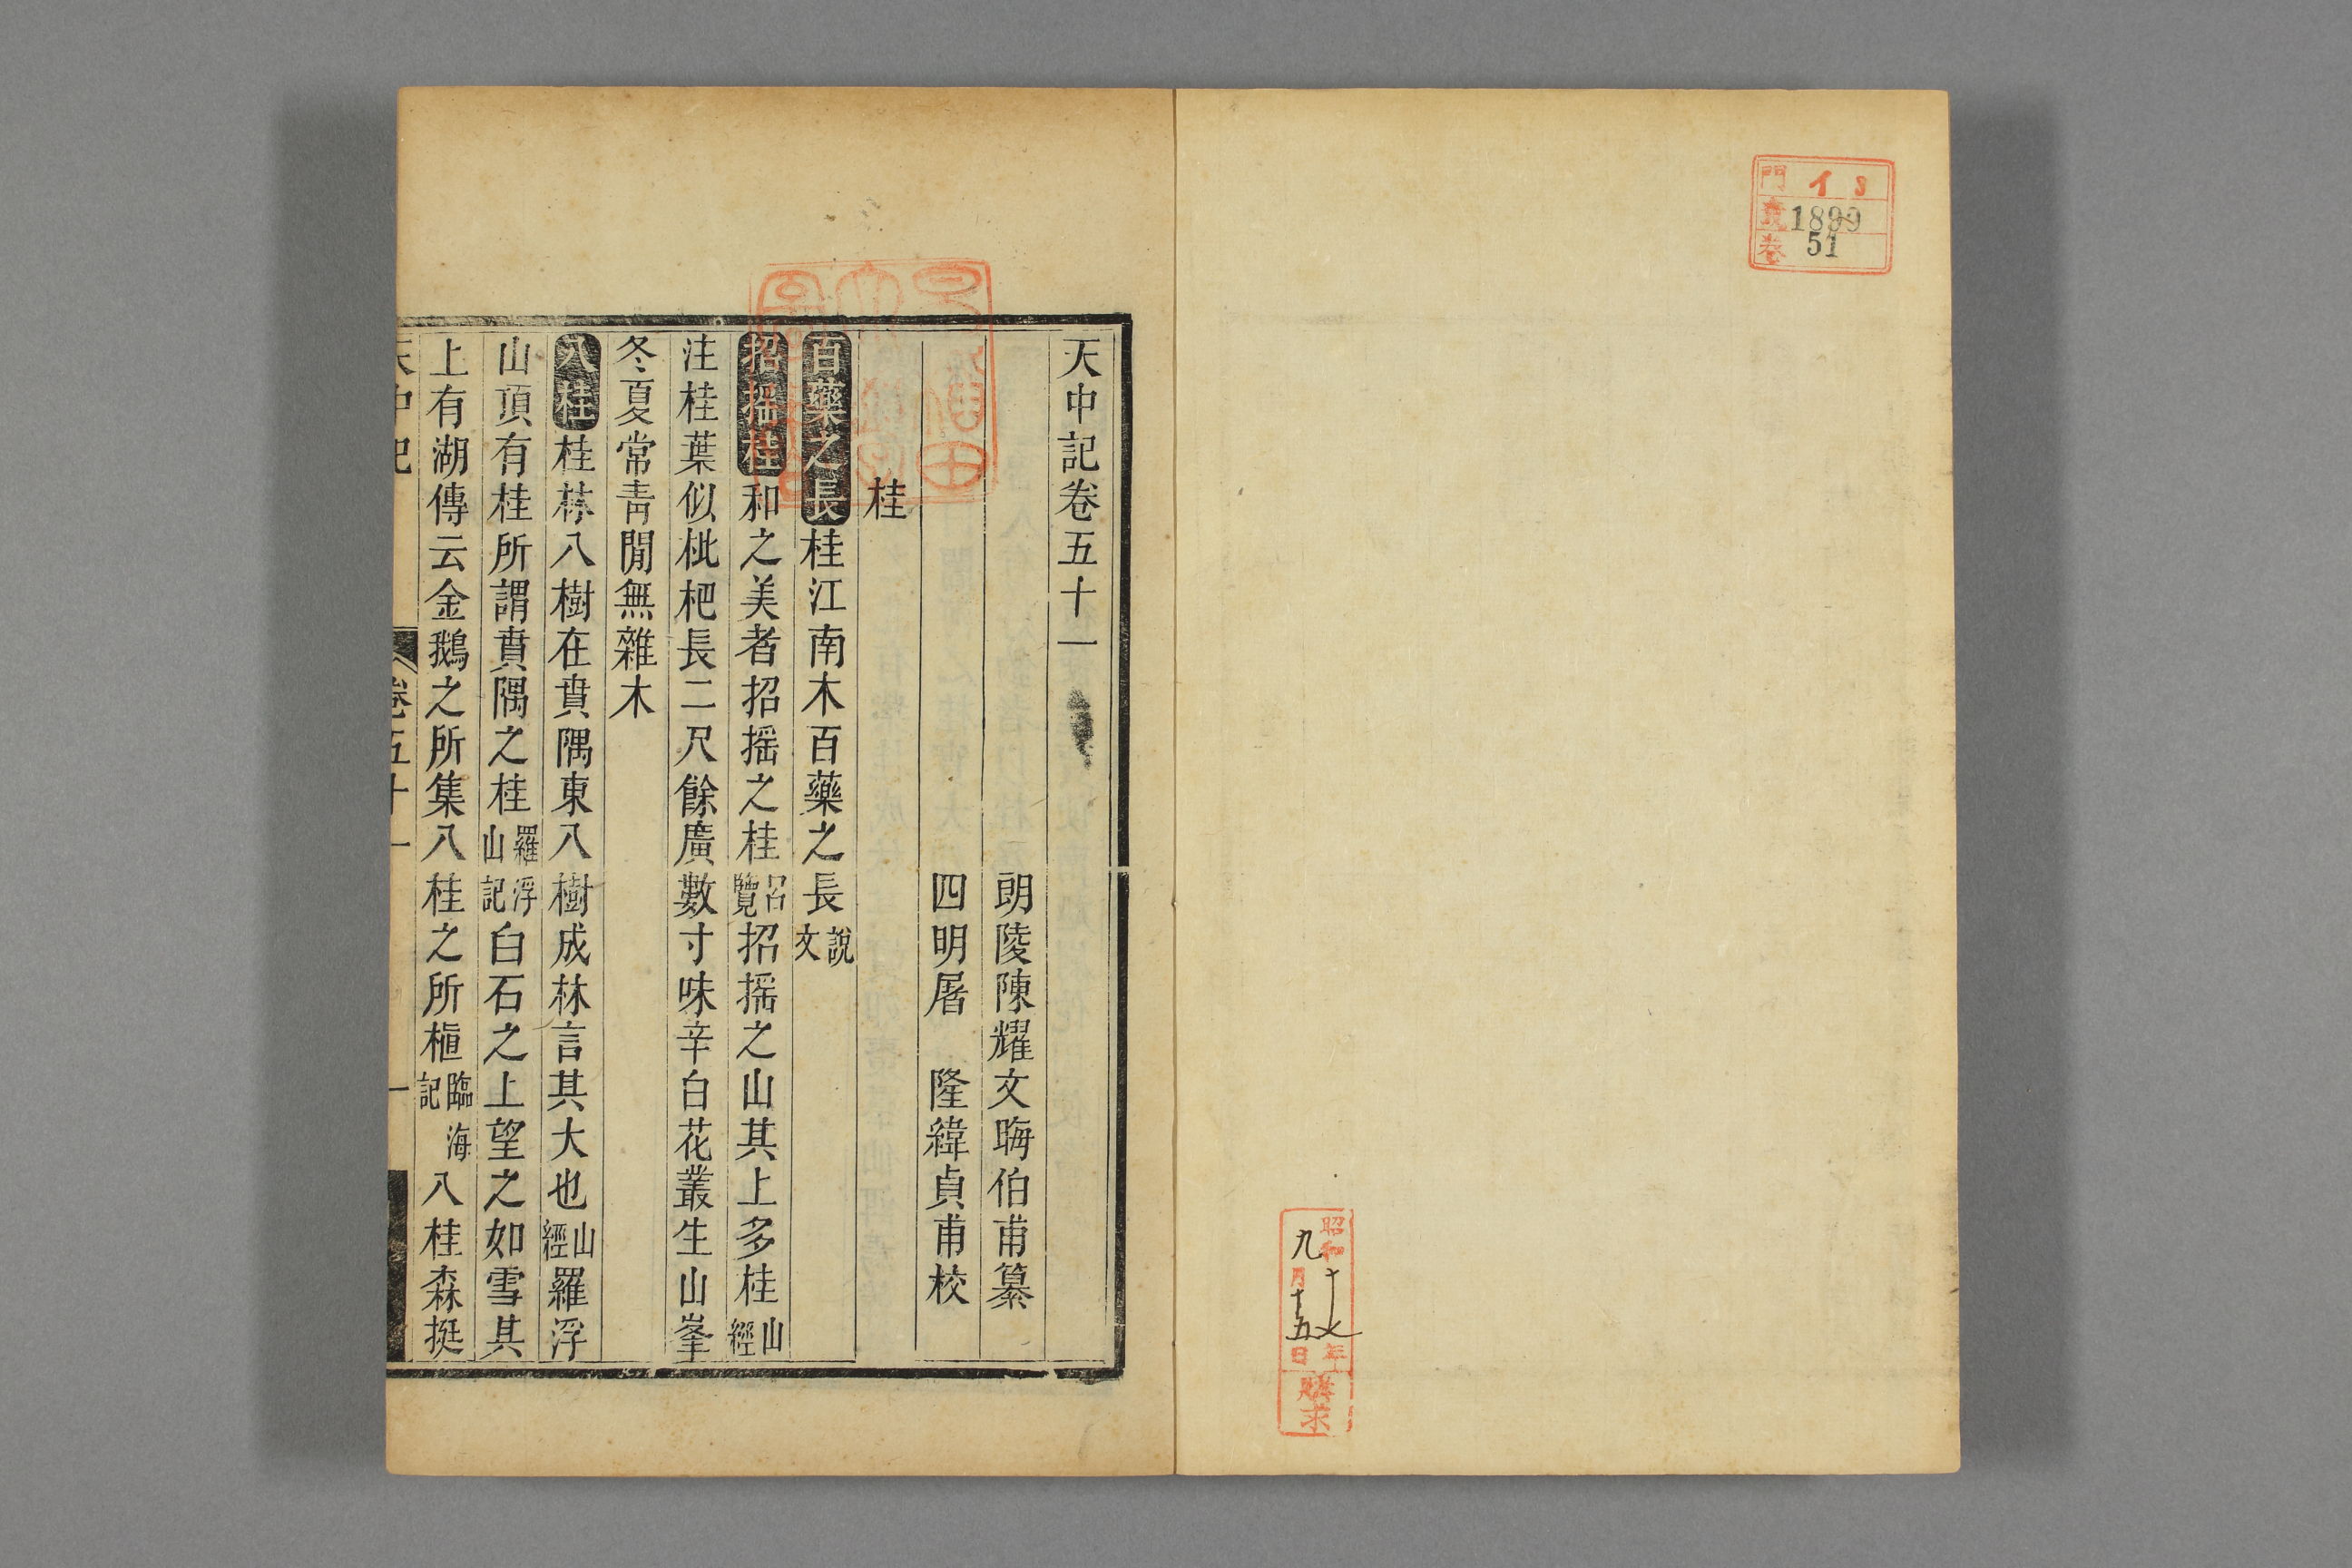 門 イ 3
號 1899
卷 51
昭和十七年
九月十五日
購求
天中記卷五十一
朗陵陳耀文晦伯甫纂
四明屠 隆緯貞甫校
桂
百藥之長桂江南木百藥之長說文
招揺桂和之美者招揺之桂呂覽招揺之山其上多桂山經
注桂葉似枇杷長二尺餘廣數寸味辛白花叢生山峯
冬夏常靑閒無雜木
八桂桂林八樹在賁隅東八樹成林言其大也山經羅浮
山頂有桂所謂賁隅之桂羅浮山記白石之上望之如雪其
上有湖傳云金鵝之所集八桂之所植臨海記八桂森挺
天中記 卷五十一 一